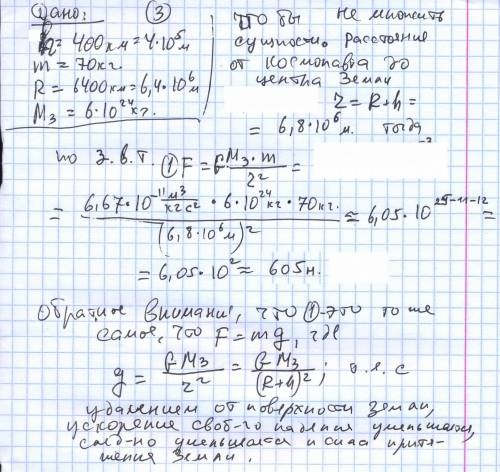 Дано: ③
h = 400 км = 4·10⁵ м
m = 70 кг.
R = 6400 км = 6,4·10⁶ м
M₃ = 6·10²⁴ кг.
что бы не множить
сущности. расстояние
от космонавта до
центра Земли
r = R+h =
= 6,8·10⁶ м. тогда
по З.в.т. ① F = G M₃·m / r² =
= 6,67·10⁻¹¹ м³/кг с² · 6·10²⁴ кг · 70 кг. / (6,8·10⁶ м)² ≈ 6,05·10²⁵⁻¹¹⁻¹² =
= 6,05·10² ≈ 605 н.
Обратите внимание, что ①-это то же
самое, что F = mg, где
g = G M₃ / r² = G M₃ / (R+h)²; т.е. с
удалением от поверхности земли,
ускорение своб-го падения уменьшается,
след-но уменьшается и сила притя-
жения Земли.